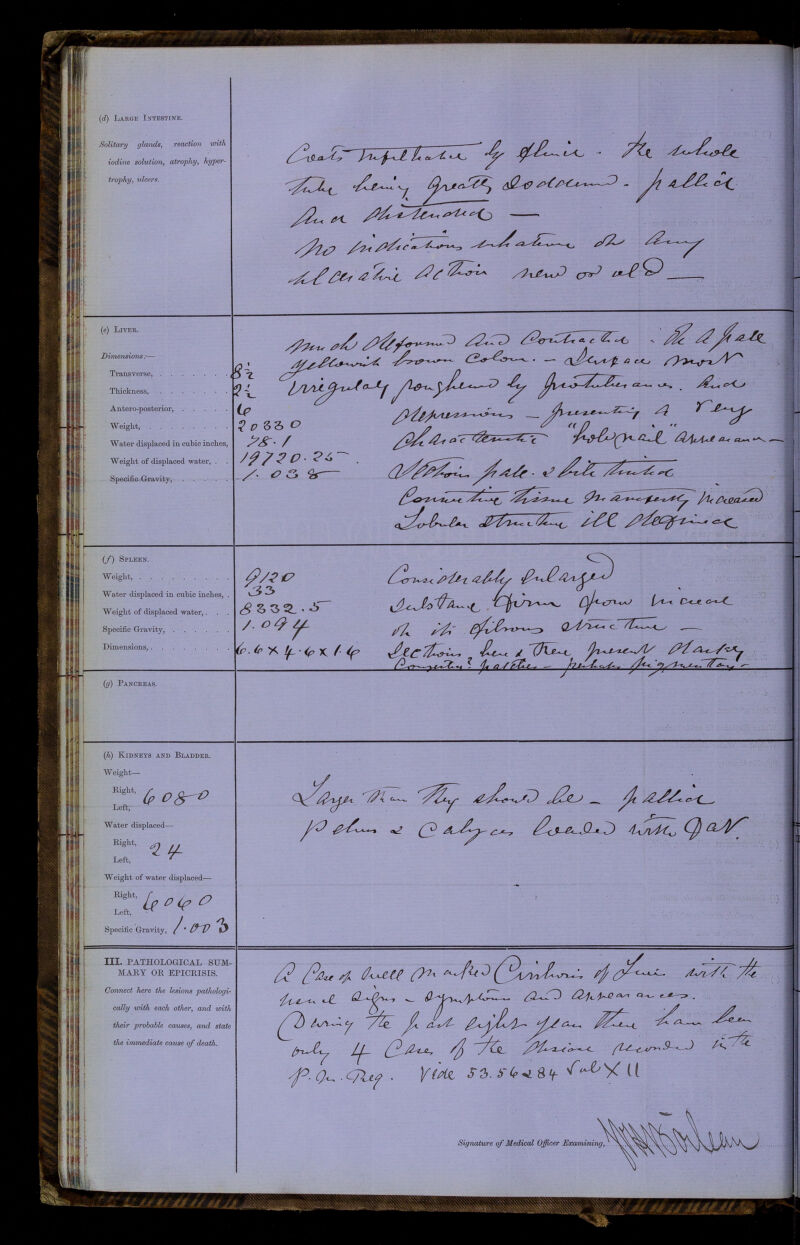 (d) LARGE INTESTINE.
Solitary glands, reaction with
iodine solution, atrophy, hyper-
trophy, ulcers.
Coats infiltrated by fluid - the whole
tube being greatly soddened - pallid
And distended —
No indications whatever of any
ulcerative action new or old —
(e) LIVER.
Dimensions:—
Transverse, 8½
Thickness, 2½
Antero-posterior, 6
Weight, 20330
Water displaced in cubic inches, 78.1
Weight of displaced water, 19720.25
Specific Gravity, 1.038
Much deformed and Contracted - Of a pale
yellowish brown colour. - Surface most
irregularly roughened by protuberances. And
depressions - presenting a very
characteristic "hob nail" appearance —
Sections pale & bile tinted
Connective tissue manifestly increased
Lobular structure ill defined
(f) SPLEEN.
Weight, 9120
Water displaced in cubic inches, 33
Weight of displaced water, 8332.5
Specific Gravity, 1.094
Dimensions, 6.6 x 4.6 x 1.6
Considerably enlarged
Substance firm from increase
of its fibrous structure —
Sections here & there present darkey
Congested? patches - perhaps pigmentary -
(g) PANCREAS.
(h) KIDNEYS AND BLADDER.
Weight—
Right,
Left, 6080
Water displaced—
Right,
Left, 24
Weight of water displaced—
Right,
Left, 6060
Specific Gravity, 1.003
Larger than they should be - pallid
Pelvis & Calyces loaded with Fat.
III. PATHOLOGICAL SUM-
MARY OR EPICRISIS.
Connect here the lesions pathologi-
cally with each other, and with
their probable causes, and state
the immediate cause of death.
A Case of well marked Cirrhosis of Liver with the
usual signs - symptoms and appearances.
During the past eight years there have been
only 4 Cases of the disease recorded in the
P.M. Reg. Vide 53.56 & 84 Vol XII
Signature of Medical Officer Examining,